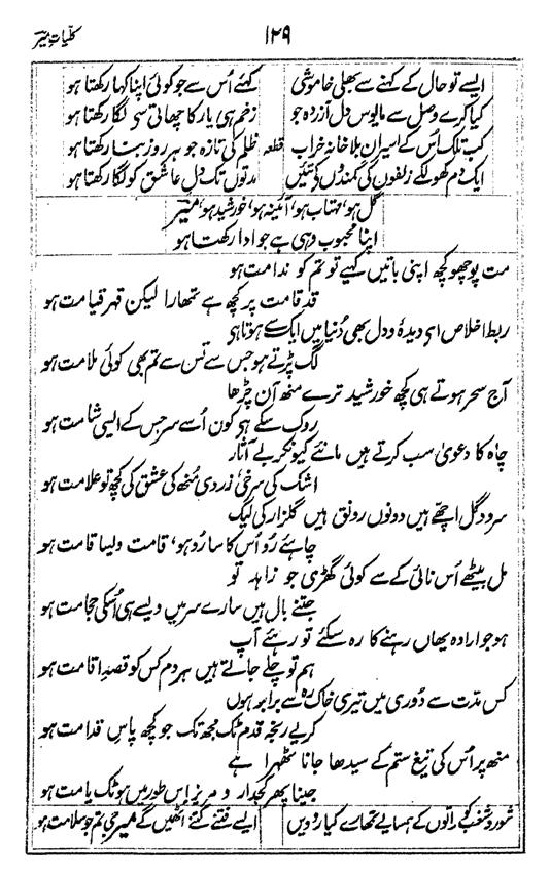 کلیاتِ میر
۱۲۹
ایسے تو حال کے کہنے سے بھلی خاموشی کہئے اُس سے جو کوئی اپنا کہا رکھتا ہو
کیا کرے وصل سے مایوس دل آزردہ جو زخم ہی یار کا چھاتی سے لگا رکھتا ہو
کب تلک اُس کے اسیرانِ بلا خانہ خراب قطعہ ظلم کی تازہ جو ہر روز بنا رکھتا ہو
ایک دم کھول کے زلفوں کی کمندوں کے تئیں مدتوں تک دلِ عاشق کو لگا رکھتا ہو
گل ہو، مہتاب ہو، آئینہ ہو، خورشید ہو، میر
اپنا محبوب وہی ہے جو ادا رکھتا ہو
مت پوچھو کچھ اپنی باتیں کہیے تو تم کو ندامت ہو
قد قامت یہ کچھ ہے تمھارا لیکن قہر قیامت ہو
ربط اخلاص اے دیدہ و دل بھی دُنیا میں ایک سے ہوتا ہے
لگ پڑتے ہو جس سے تس سے تم بھی کوئی ملامت ہو
آج سحر ہوتے ہی کچھ خورشید ترے منھ آن چڑھا
روک سکے ہے کون اُسے سر جس کے ایسی شامت ہو
چاہ کا دعویٰ سب کرتے ہیں مانئے کیونکر بے آثار
اشک کی سرخی زردی منھ کی عشق کی کچھ تو علامت ہو
سرو و گل اچھے ہیں دونوں رونق ہیں گلزار کی لیک
چاہئے رو اُس کا سا رو ہو، قامت ویسا قامت ہو
مل بیٹھے اُس نائی کے سے کوئی گھڑی جو زاہد تو
جتنے بال ہیں سارے سر میں ویسے ہی اُسکی حجامت ہو
ہو جو ارادہ یھاں رہنے کا رہ سکئے تو رہئے آپ
ہم تو چلے جاتے ہیں ہر دم کس کو قصدِ اقامت ہو
کس مدّت سے دُوری میں تیری خاک رہ سے برابر ہوں
کریے رنجہ قدم ٹک مجھ تک جو کچھ پاسِ قدامت ہو
منھ پر اُس کی تیغِ ستم کے سیدھا جانا ٹھہرا ہے
جینا پھر کجدار و مریز اس طور میں ہو ٹک یا مت ہو
شور و شغب کو راتوں کے ہمسایے تمھارے کیا روویں ایسے فتنے کتنے اُٹھیں گے میر جی تم جو سلامت ہو